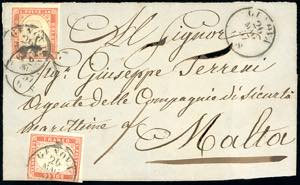 Al Signor
Sig. Giuseppe Terreni
Agente delle Compagnie di Sicurtà
marittime a
Malta
GENOVA
26
GENOVA
26